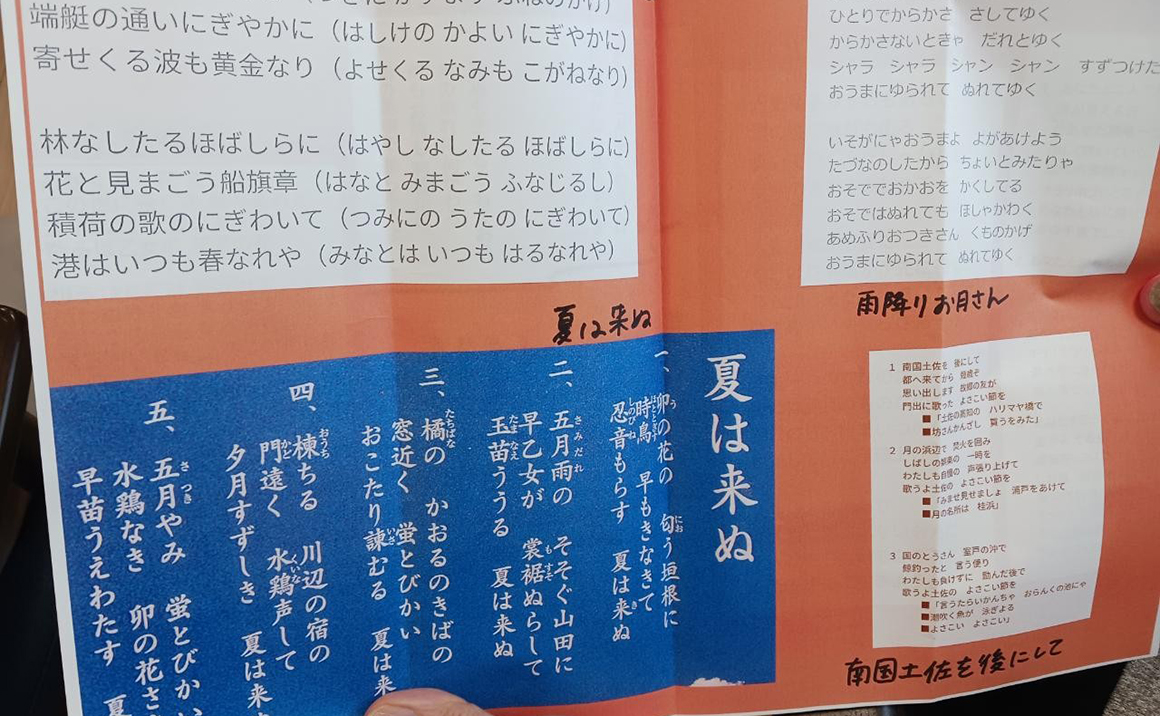 端艇の通いにぎやかに（はしけの かよい にぎやかに）
寄せくる波も黄金なり（よせくる なみも こがねなり）
林なしたるほばしらに（はやし なしたる ほばしらに）
花と見まごう船旗章（はなと みまごう ふなじるし）
積荷の歌のにぎわいて（つみにの うたの にぎわいて）
港はいつも春なれや（みなとは いつも はるなれや）
ひとりでからかさ さしてゆく
からかさないときゃ だれとゆく
シャラ シャラ シャン シャン すずつけた
おうまにゆられて ぬれてゆく
いそがにゃおうまよ よがあけよう
たづなのしたから ちょいとみたりゃ
おそででおかおを かくしてる
おそではぬれても ほしゃかわく
あめふりおつきさん くものかげ
おうまにゆられて ぬれてゆく
雨降りお月さん
夏は来ぬ
夏は来ぬ
一、卯の花の 匂う垣根に
時鳥 早もきなきて
忍音もらす 夏は来ぬ
二、五月雨の そそぐ山田に
早乙女が 裳裾ぬらして
玉苗ううる 夏は来ぬ
三、橘の かおるのきばの
窓近く 蛍とびかい
おこたり諫むる 夏は来
四、楝ちる 川辺の宿の
門遠く 水鶏声して
夕月すずしき 夏は来
五、五月やみ 蛍とびかい
水鶏なき 卯の花さ
早苗うえわたす 夏
1 南国土佐を 後にして
都へ来てから 幾歳ぞ
思い出します 故郷の友が
門出に歌った よさこい節を
■「土佐の高知の ハリマヤ橋で
■坊さんかんざし 買うをみた」
2 月の浜辺で 焚火を囲み
しばしの娯楽の 一時を
わたしも自慢の 声張り上げて
歌うよ土佐の よさこい節を
■「みませ見せましょ 浦戸をあけて
■月の名所は 桂浜」
3 国のとうさん 室戸の沖で
鯨釣ったと 言う便り
わたしも負けずに 励んだ後で
歌うよ土佐の よさこい節を
■「言うたらいかんちゃ おらんくの池にゃ
■潮吹く魚が 泳ぎよる
■よさこい よさこい」
南国土佐を後にして